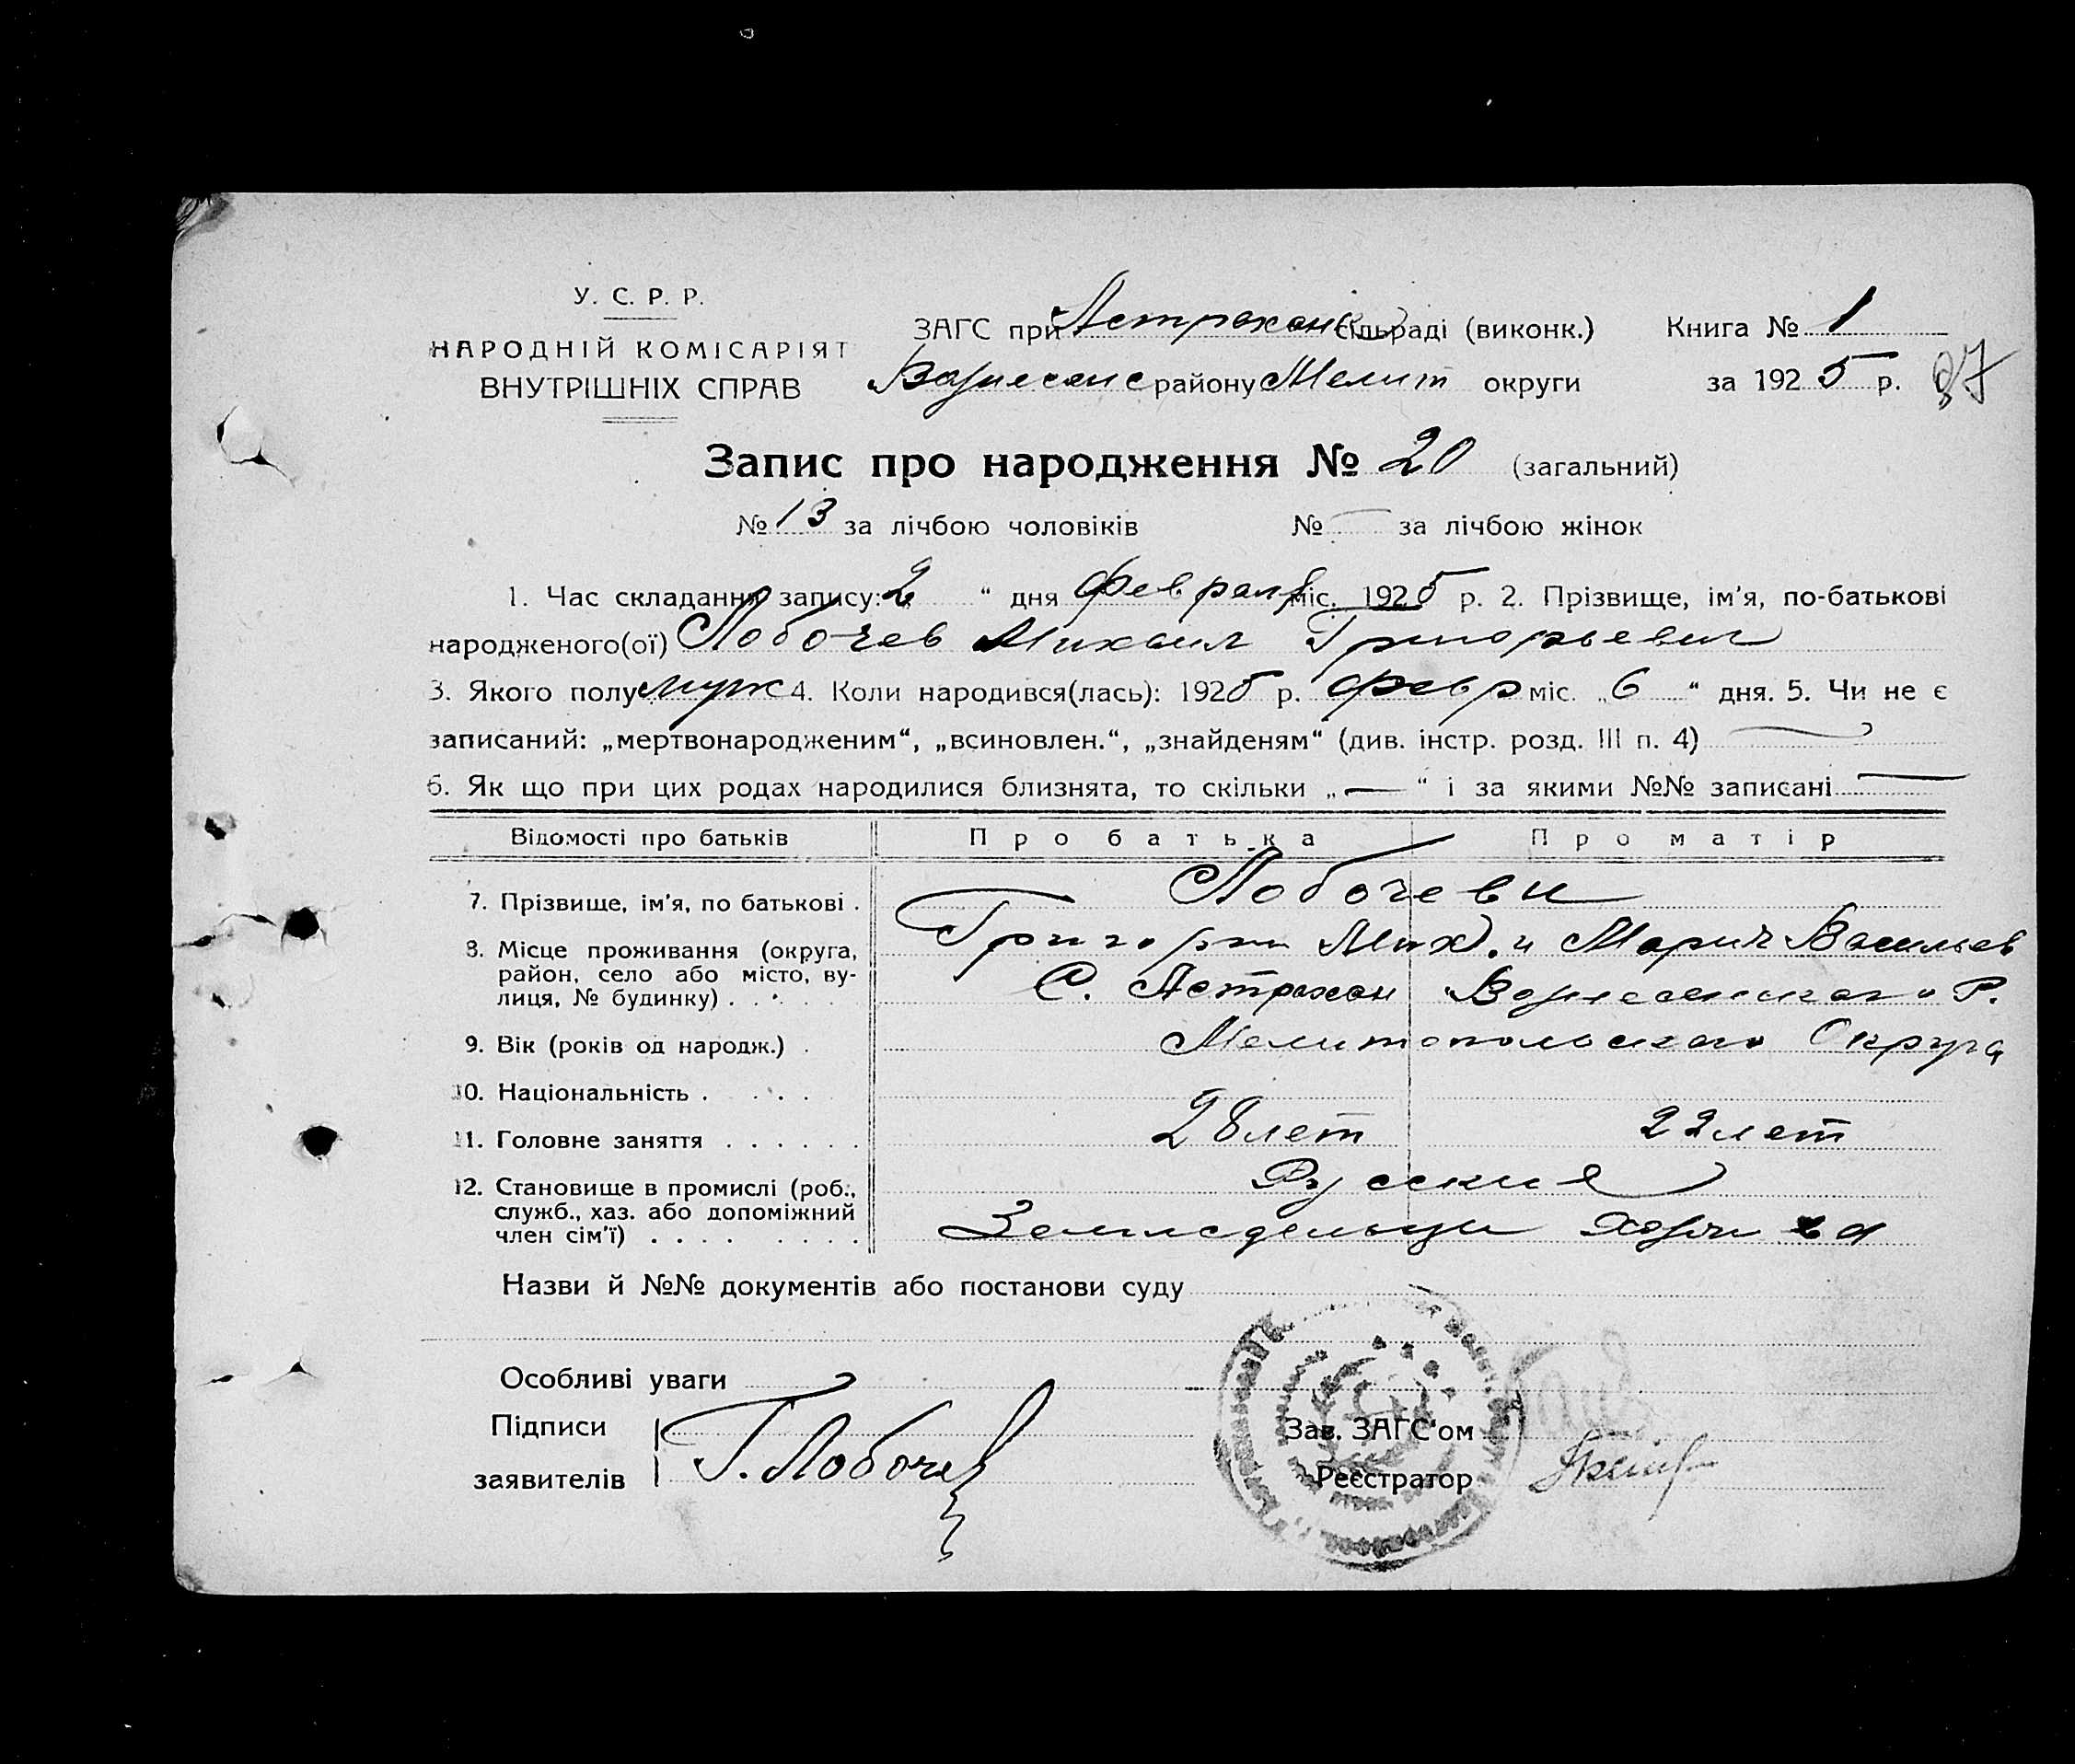 У. С. Р. Р.
НАРОДНІЙ КОМІСАРІЯТ
ВНУТРІШНІХ СПРАВ
ЗАГС при Астрахан сільраді (виконк.) Книга № 1
Вознесенс району Мелит округи за 1925 р. 97
Запис про народження № 20 (загальний)
№ 13 за лічбою чоловіків № — за лічбою жінок
1. Час складання запису: 2 “ дня Февраля міс. 1925 р. 2. Прізвище, ім'я, по-батькові
народженого(ої) Лобочев Михаил Григорьевич
3. Якого полу муж 4. Коли народився(лась): 1925 р. февр міс. „6“ дня. 5. Чи не є
записаний: „мертвонародженим“, „всиновлен.“, „знайденям“ (див. інстр. розд. III п. 4) —
6. Як що при цих родах народилися близнята, то скільки „—“ і за якими №№ записані —
Відомості про батьків Про батька Про матір
7. Прізвище, ім'я, по батькові . Лобочеви
Григорий Мих. и Мария Васильев
8. Місце проживання (округа,
район, село або місто, ву-
лиця, № будинку) . . . С. Астрахан Вознесенского Р.
9. Вік (років од народж.) . Мелитопольского Округа
10. Національність . . . .
11. Головне заняття . . . . . . 28 лет 22 лет
12. Становище в промислі (роб.,
служб., хаз. або допоміжний
член сім'ї) . . . . . . . .
Русские
Земледельци
Назви й №№ документів або постанови суду
Особливі уваги
Підписи
заявителів
Г. Лобочев
Зав. ЗАГС'ом
Реєстратор